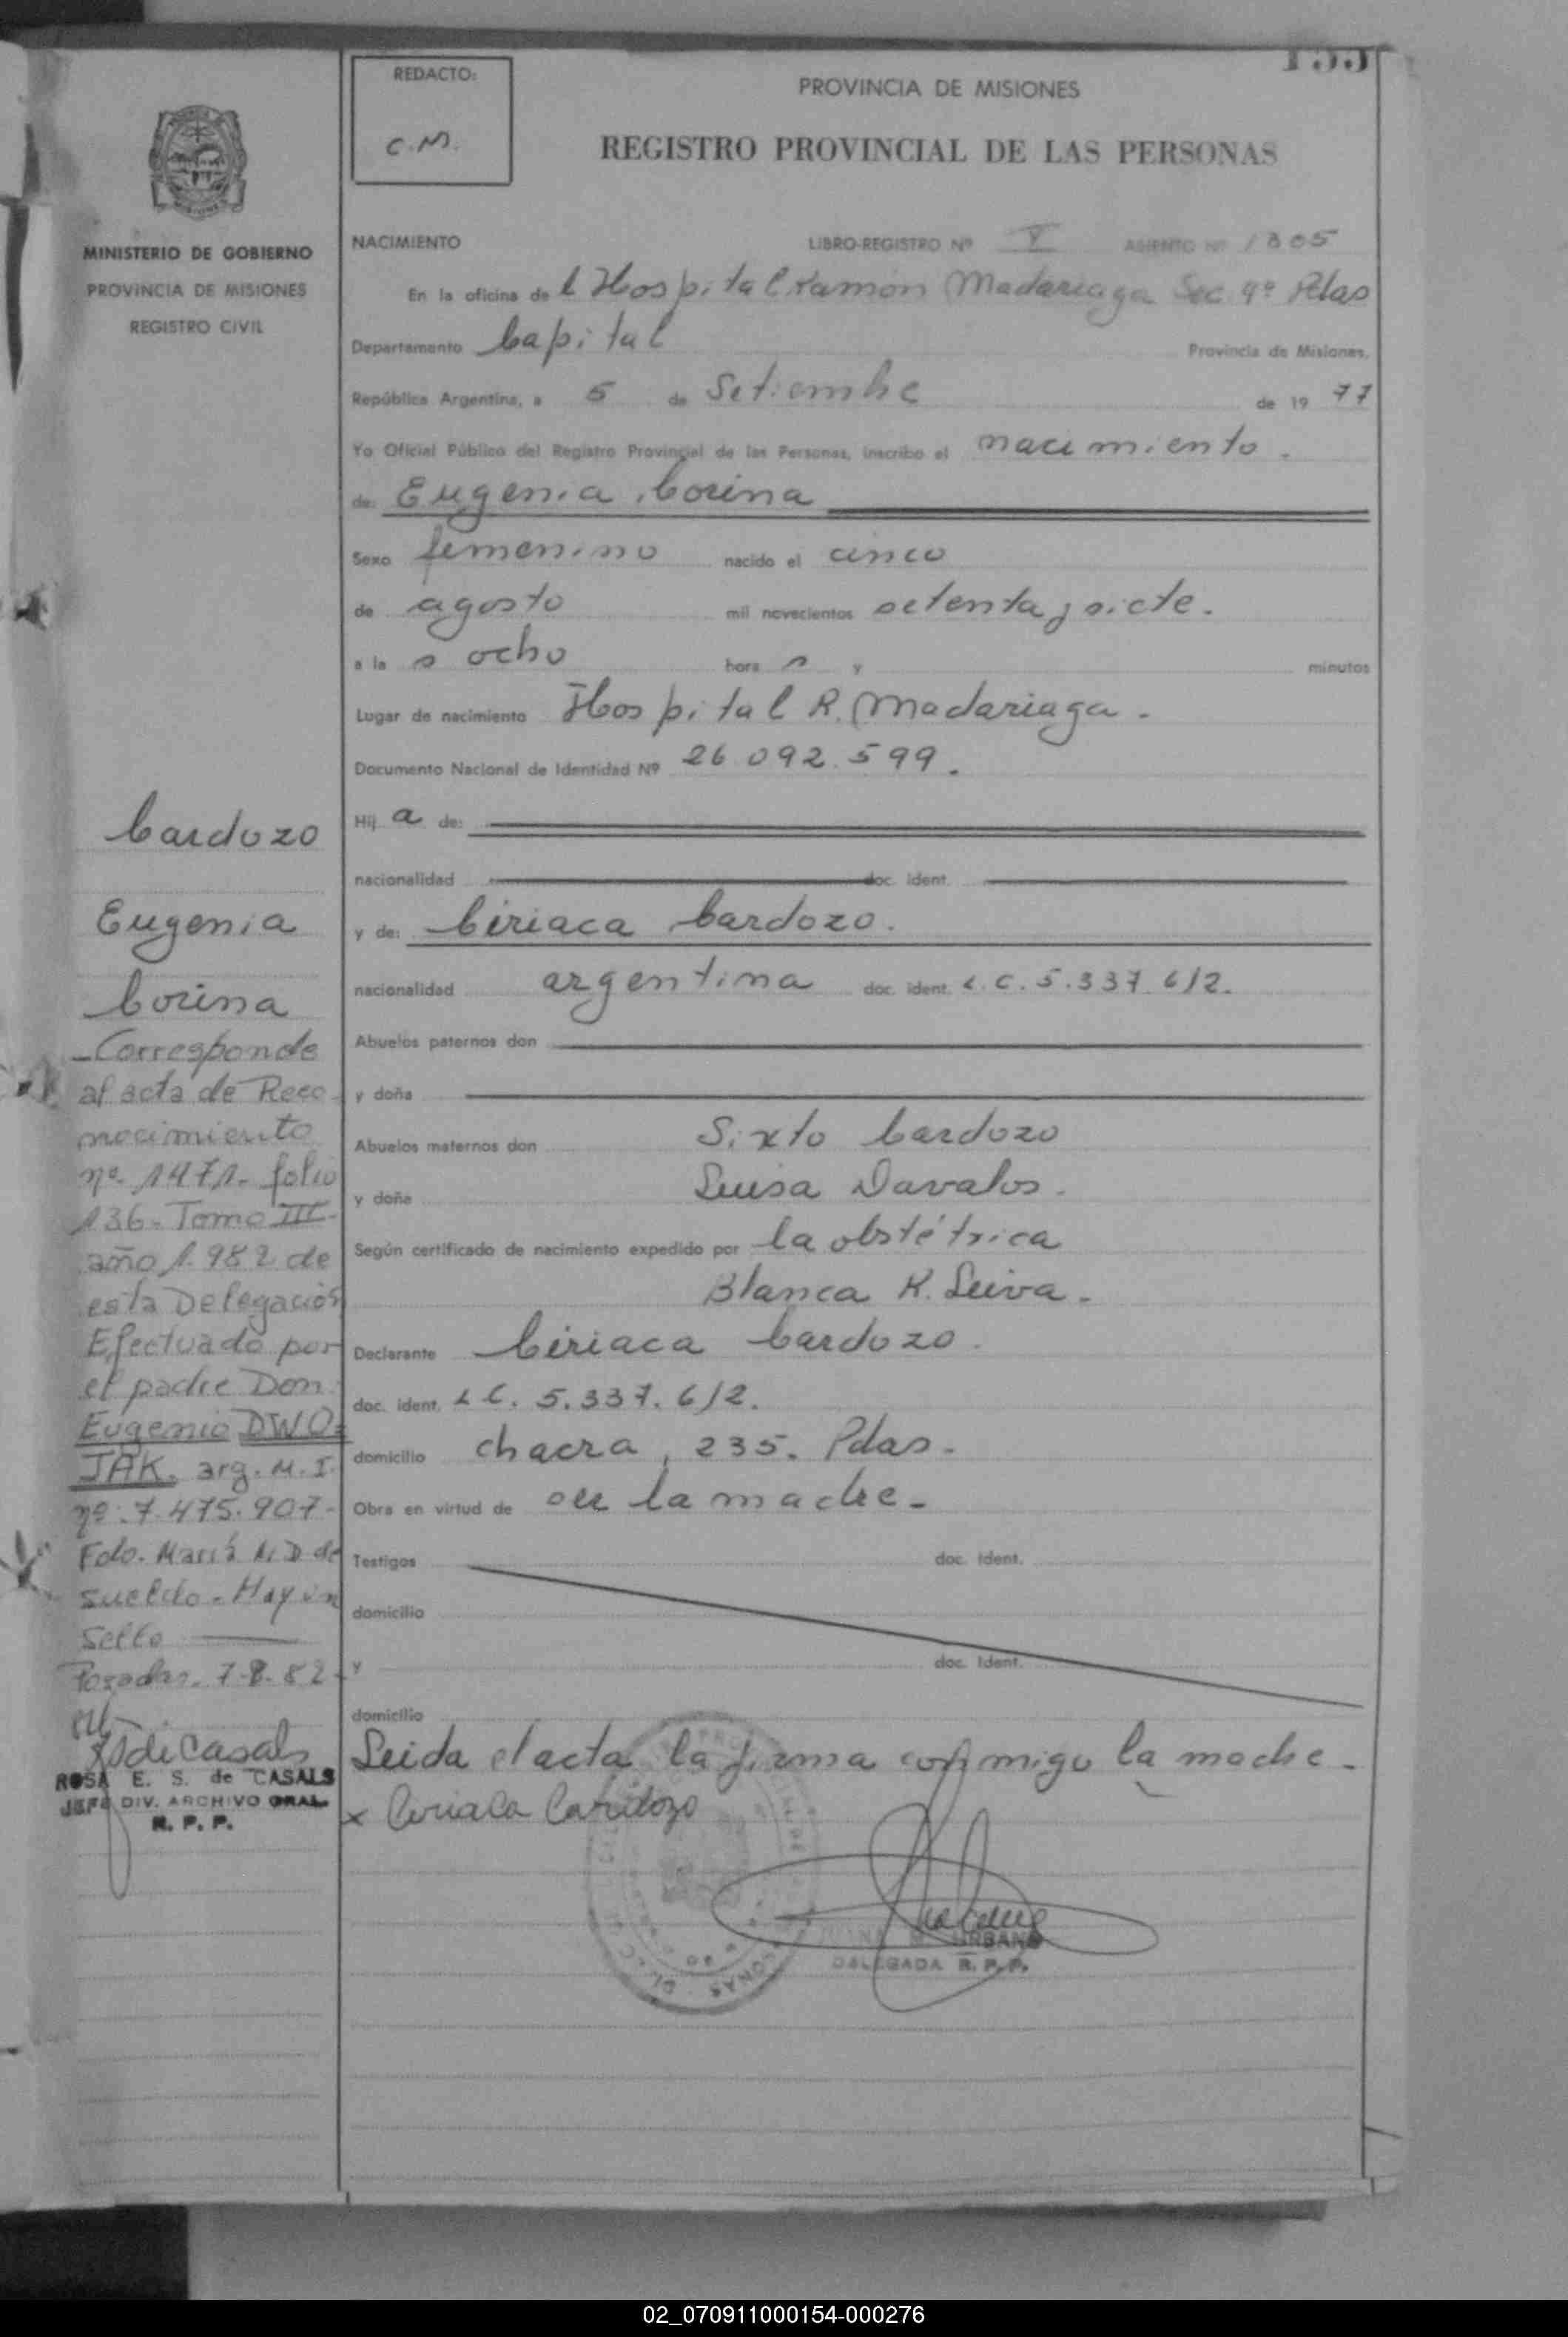 155
REDACTO:
C.M.
PROVINCIA DE MISIONES
REGISTRO PROVINCIAL DE LAS PERSONAS
MISIONES
MINISTERIO DE GOBIERNO
PROVINCIA DE MISIONES
REGISTRO CIVIL
NACIMIENTO LIBRO-REGISTRO Nº V ASIENTO Nº 1805
En la oficina de l Hospital Ramón Madariaga Sec 9º Pdas
Departamento Capital Provincia de Misiones,
República Argentina, a 5 de Setiembre de 19 77
Yo Oficial Público del Registro Provincial de las Personas, inscribo el nacimiento.
de: Eugenia Corina
Sexo femenino nacido el cinco
de agosto mil novecientos setenta y siete.
a la s ocho hora s y minutos
Lugar de nacimiento Hospital R. Madariaga.
Documento Nacional de Identidad Nº 26.092.599.
Hij a de:
nacionalidad doc. ident.
y de: Ciriaca Cardozo.
nacionalidad argentina doc. ident. L.C. 5.337.612.
Abuelos paternos don
y doña
Abuelos maternos don Sixto Cardozo
y doña Luisa Davalos.
Según certificado de nacimiento expedido por la obstétrica
Blanca R. Leiva.
Declarante Ciriaca Cardozo.
doc. ident. L C. 5.337.612.
domicilio chacra, 235. Pdas.
Obra en virtud de ser la madre.
Testigos doc. ident.
domicilio
y doc. ident.
domicilio
Leida el acta la firma conmigo la madre.
x Ciriaca Cardozo
URBANO
DELEGADA R. P. P.
Cardozo
Eugenia
Corina
-Corresponde
al acta de Reco-
nocimiento
nº 1471- folio
136- Tomo III-
año 1.982 de
esta Delegación
Efectuado por
el padre Don
Eugenio DWO=
JAK. arg. M.I.
nº: 7.475.907-
Fdo. María N. D de
Sueldo- Hay un
Sello
Posadas. 7-8-82-
RSdeCasals
ROSA E. S. de CASALS
JEFE DIV. ARCHIVO GRAL.
R. P. P.
02_070911000154-000276